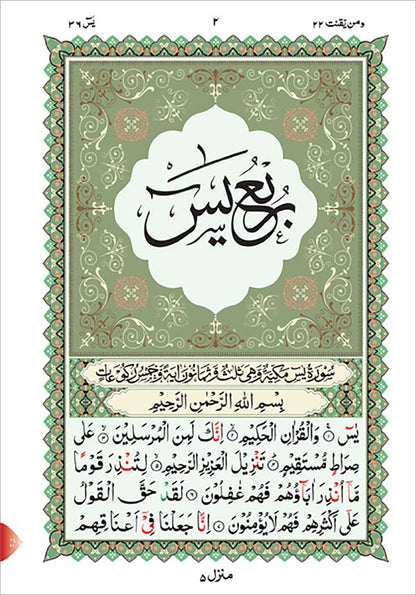 ومن یقنت ۲۲
۲
یٰسٓ ۳۶
ربع یس
سُوْرَةُ يٰسٓ مَكِّيَّةٌ وَّهِيَ ثَلٰثٌ وَّثَمَانُوْنَ اٰيَةً وَّخَمْسُ رُكُوْعَاتٍ
بِسْمِ اللّٰهِ الرَّحْمٰنِ الرَّحِيْمِ
يٰسٓ ۝ وَالْقُرْاٰنِ الْحَكِيْمِ ۝ اِنَّكَ لَمِنَ الْمُرْسَلِيْنَ ۝ عَلٰى
صِرَاطٍ مُّسْتَقِيْمٍ ۝ تَنْزِيْلَ الْعَزِيْزِ الرَّحِيْمِ ۝ لِتُنْذِرَ قَوْمًا
مَّاۤ اُنْذِرَ اٰبَآؤُهُمْ فَهُمْ غٰفِلُوْنَ ۝ لَقَدْ حَقَّ الْقَوْلُ
عَلٰۤى اَكْثَرِهِمْ فَهُمْ لَا يُؤْمِنُوْنَ ۝ اِنَّا جَعَلْنَا فِيْۤ اَعْنَاقِهِمْ
منزل ۵